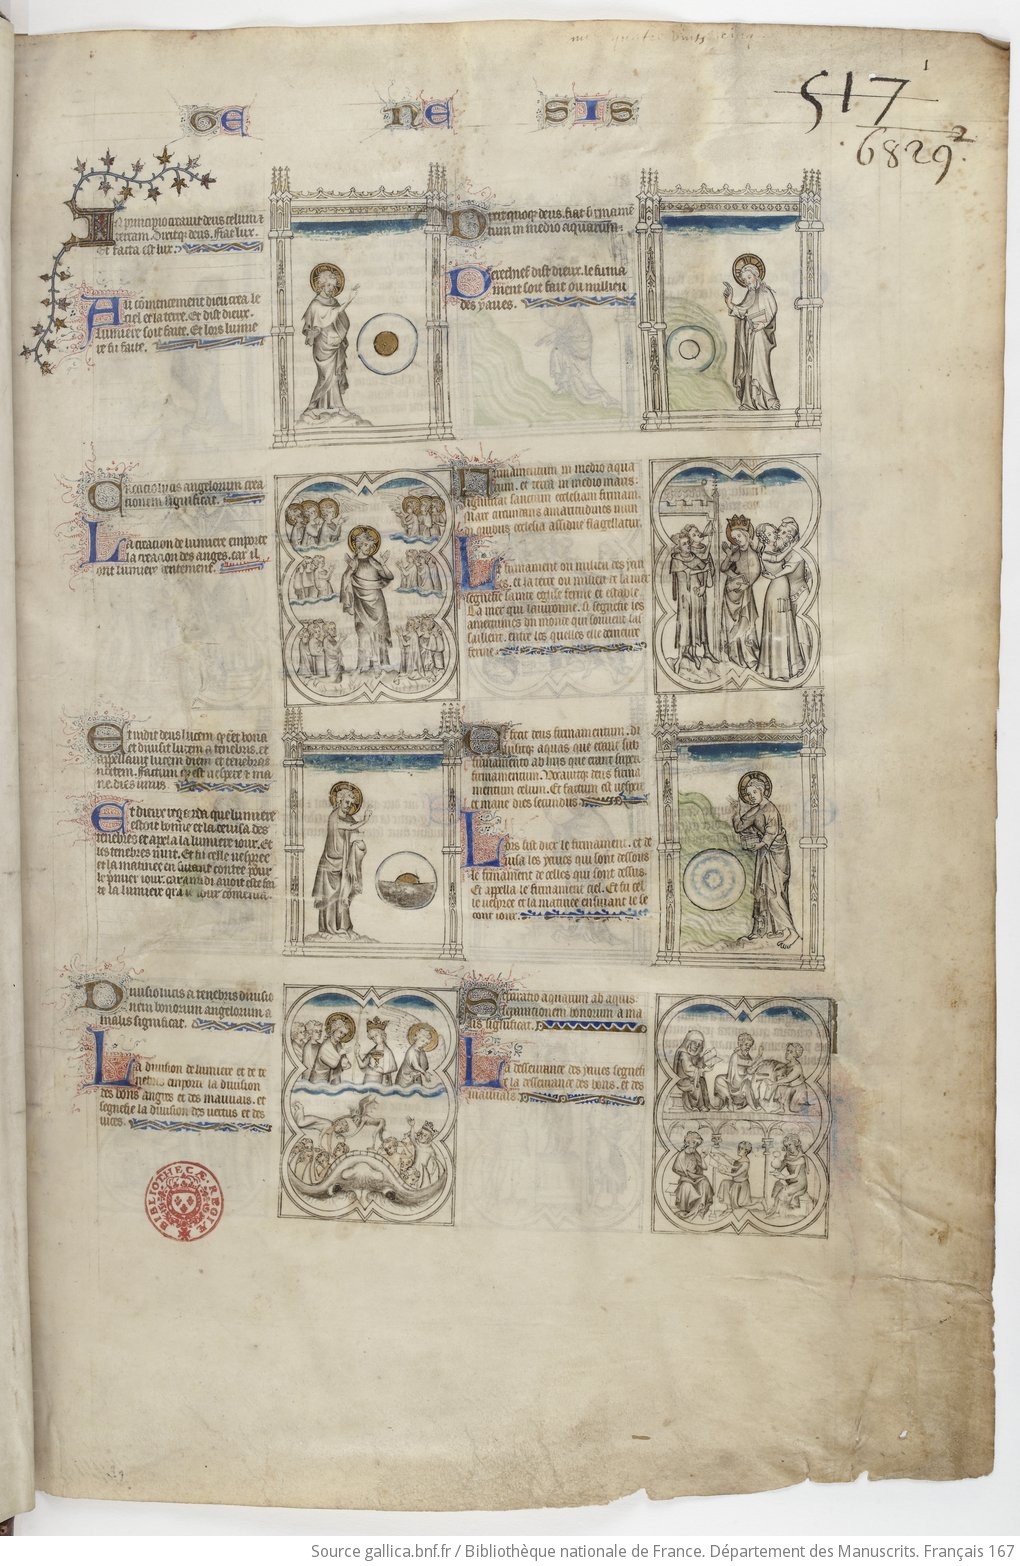 517
6829²
1
GE NE SIS
In principio creavit deus celum et
terram. Dixitq; deus. fiat lux.
Et facta est lux.
Au cōmencement dieu crea le
ciel et la terre. Et dist dieux.
lumiere soit faite. Et lors lumie
re fu faite.
Dixit quoq; deus. fiat firmamē
tum in medio aquarum.
Derechief dist dieux. le firma
ment soit fait ou millieu
des yaues.
Creatio lucis angelorum crea
tionem significat.
La creation de lumiere emporte
la creacion des anges. car il
ont lumiere
Firmamentum in medio aqua
rum. et terra in medio maris.
significat sanctam ecclesiam firmam.
in mari amaritudines mun
di quibus ecclesia assidue flagellatur.
Le firmament ou millieu des yaues
et la terre ou millieu de la mer
segnefie sainte eglise ferme et estable.
La mer qui lauironne. si segnefie les
amertumes du monde qui souuent las
saillent. entre les quelles elle demeure
ferme.
Et vidit deus lucem q; esset bona
et divisit lucem a tenebris. et
appellavit lucem diem et tenebras
noctem. Factum q; est vespere et ma
ne. dies unus.
Et dieux regarda que lumiere
estoit bonne et la deuisa des
tenebres et apela la lumiere iour. Et
les tenebres nuit. Et fu celle vespree
et la matinee en suiuant contee pour
le premier iour. car
la lumiere
Et fecit deus firmamentum. di
visitq; aquas que erant sub
firmamento ab hiis que erant super
firmamentum. Vocavitq; deus firma
mentum celum. Et factum est vespere
et mane dies secundus
Lors fist dieu le firmament. et de
uisa les yaues qui sont dessous
le firmament de celles qui sont dessus.
Et apella le firmament ciel. Et fu cel
le vespree et la matinee ensuiant le se
cont iour.
Divisio lucis a tenebris divisio
nem bonorum angelorum a
malis significat.
La diuision de lumiere et de te
nebres emporte la diuision
des bons anges et des mauuais. et
segnefie la diuision des vertus et des
vices.
Separatio aquarum ab aquis.
segregationem bonorum a ma
lis significat.
La desseurance des yaues segnefi
e la desseurance des bons. et des
mauuais.
BIBLIOTHECÆ REGIÆ
Source gallica.bnf.fr / Bibliothèque nationale de France. Département des Manuscrits. Français 167